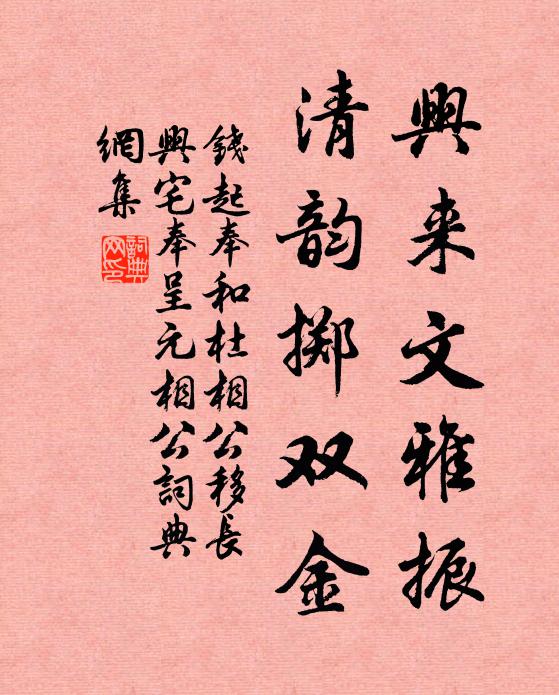 興来文雅振
清韵掷双金
錢起奉和杜相公移長
興宅奉呈元相公詞典
網集
詞典網印